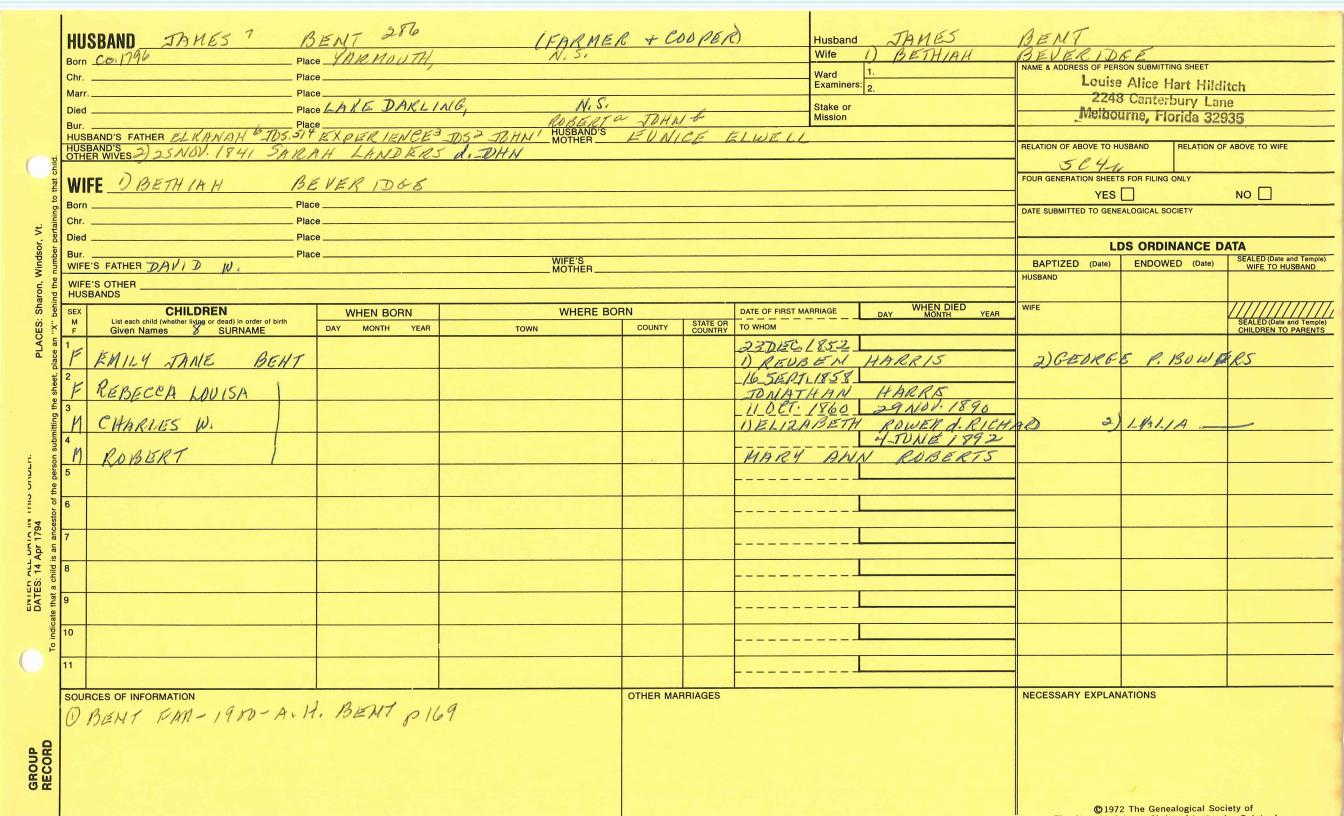 HUSBAND JAMES 7 BENT 286 (FARMER + COOPER)
Born ca 1796 Place YARMOUTH, N.S.
Chr. Place
Marr. Place
Died Place LAKE DARLING, N.S.
Bur. Place ROBERT a JOHN b
HUSBAND'S FATHER ELKANAH 6 JDS.514 EXPERIENCE3 JDS2 JOHN1 HUSBAND'S MOTHER EUNICE ELWELL
HUSBAND'S OTHER WIVES 2) 25 NOV. 1841 SARAH LANDERS d. JOHN
Husband JAMES BENT
Wife 1) BETHIAH BEVERIDGE
Ward Examiners: 1.
2.
Stake or Mission
NAME & ADDRESS OF PERSON SUBMITTING SHEET
Louise Alice Hart Hilditch
2248 Canterbury Lane
Melbourne, Florida 32935
RELATION OF ABOVE TO HUSBAND RELATION OF ABOVE TO WIFE
5C4r
FOUR GENERATION SHEETS FOR FILING ONLY
YES NO
DATE SUBMITTED TO GENEALOGICAL SOCIETY
WIFE 1) BETHIAH BEVERIDGE
Born Place
Chr. Place
Died Place
Bur. Place
WIFE'S FATHER DAVID W. WIFE'S MOTHER
WIFE'S OTHER HUSBANDS
LDS ORDINANCE DATA
BAPTIZED (Date) ENDOWED (Date) SEALED (Date and Temple) WIFE TO HUSBAND
HUSBAND
WIFE
SEALED (Date and Temple) CHILDREN TO PARENTS
SEX M F
CHILDREN
List each child (whether living or dead) in order of birth
Given Names SURNAME
WHEN BORN
DAY MONTH YEAR
WHERE BORN
TOWN COUNTY STATE OR COUNTRY
DATE OF FIRST MARRIAGE
TO WHOM
WHEN DIED
DAY MONTH YEAR
1 23 DEC 1852
F EMILY JANE BENT 1) REUBEN HARRIS 2) GEORGE P. BOWERS
2 16 SEPT. 1858
F REBECCA LOUISA JONATHAN HARRIS
3 11 OCT. 1860 29 NOV. 1890
M CHARLES W. 1) ELIZABETH ROWER d. RICHARD 2)
4 4 JUNE 1892
M ROBERT MARY ANN ROBERTS
5
6
7
8
9
10
11
SOURCES OF INFORMATION
① BENT FAM - 1900 - A.H. BENT p169
OTHER MARRIAGES
NECESSARY EXPLANATIONS
©1972 The Genealogical Society of
PLACES: Sharon, Windsor, Vt.
DATES: 14 Apr 1794
To indicate that a child is an ancestor of the person submitting the sheet, place an "X" behind the number pertaining to that child.
GROUP RECORD